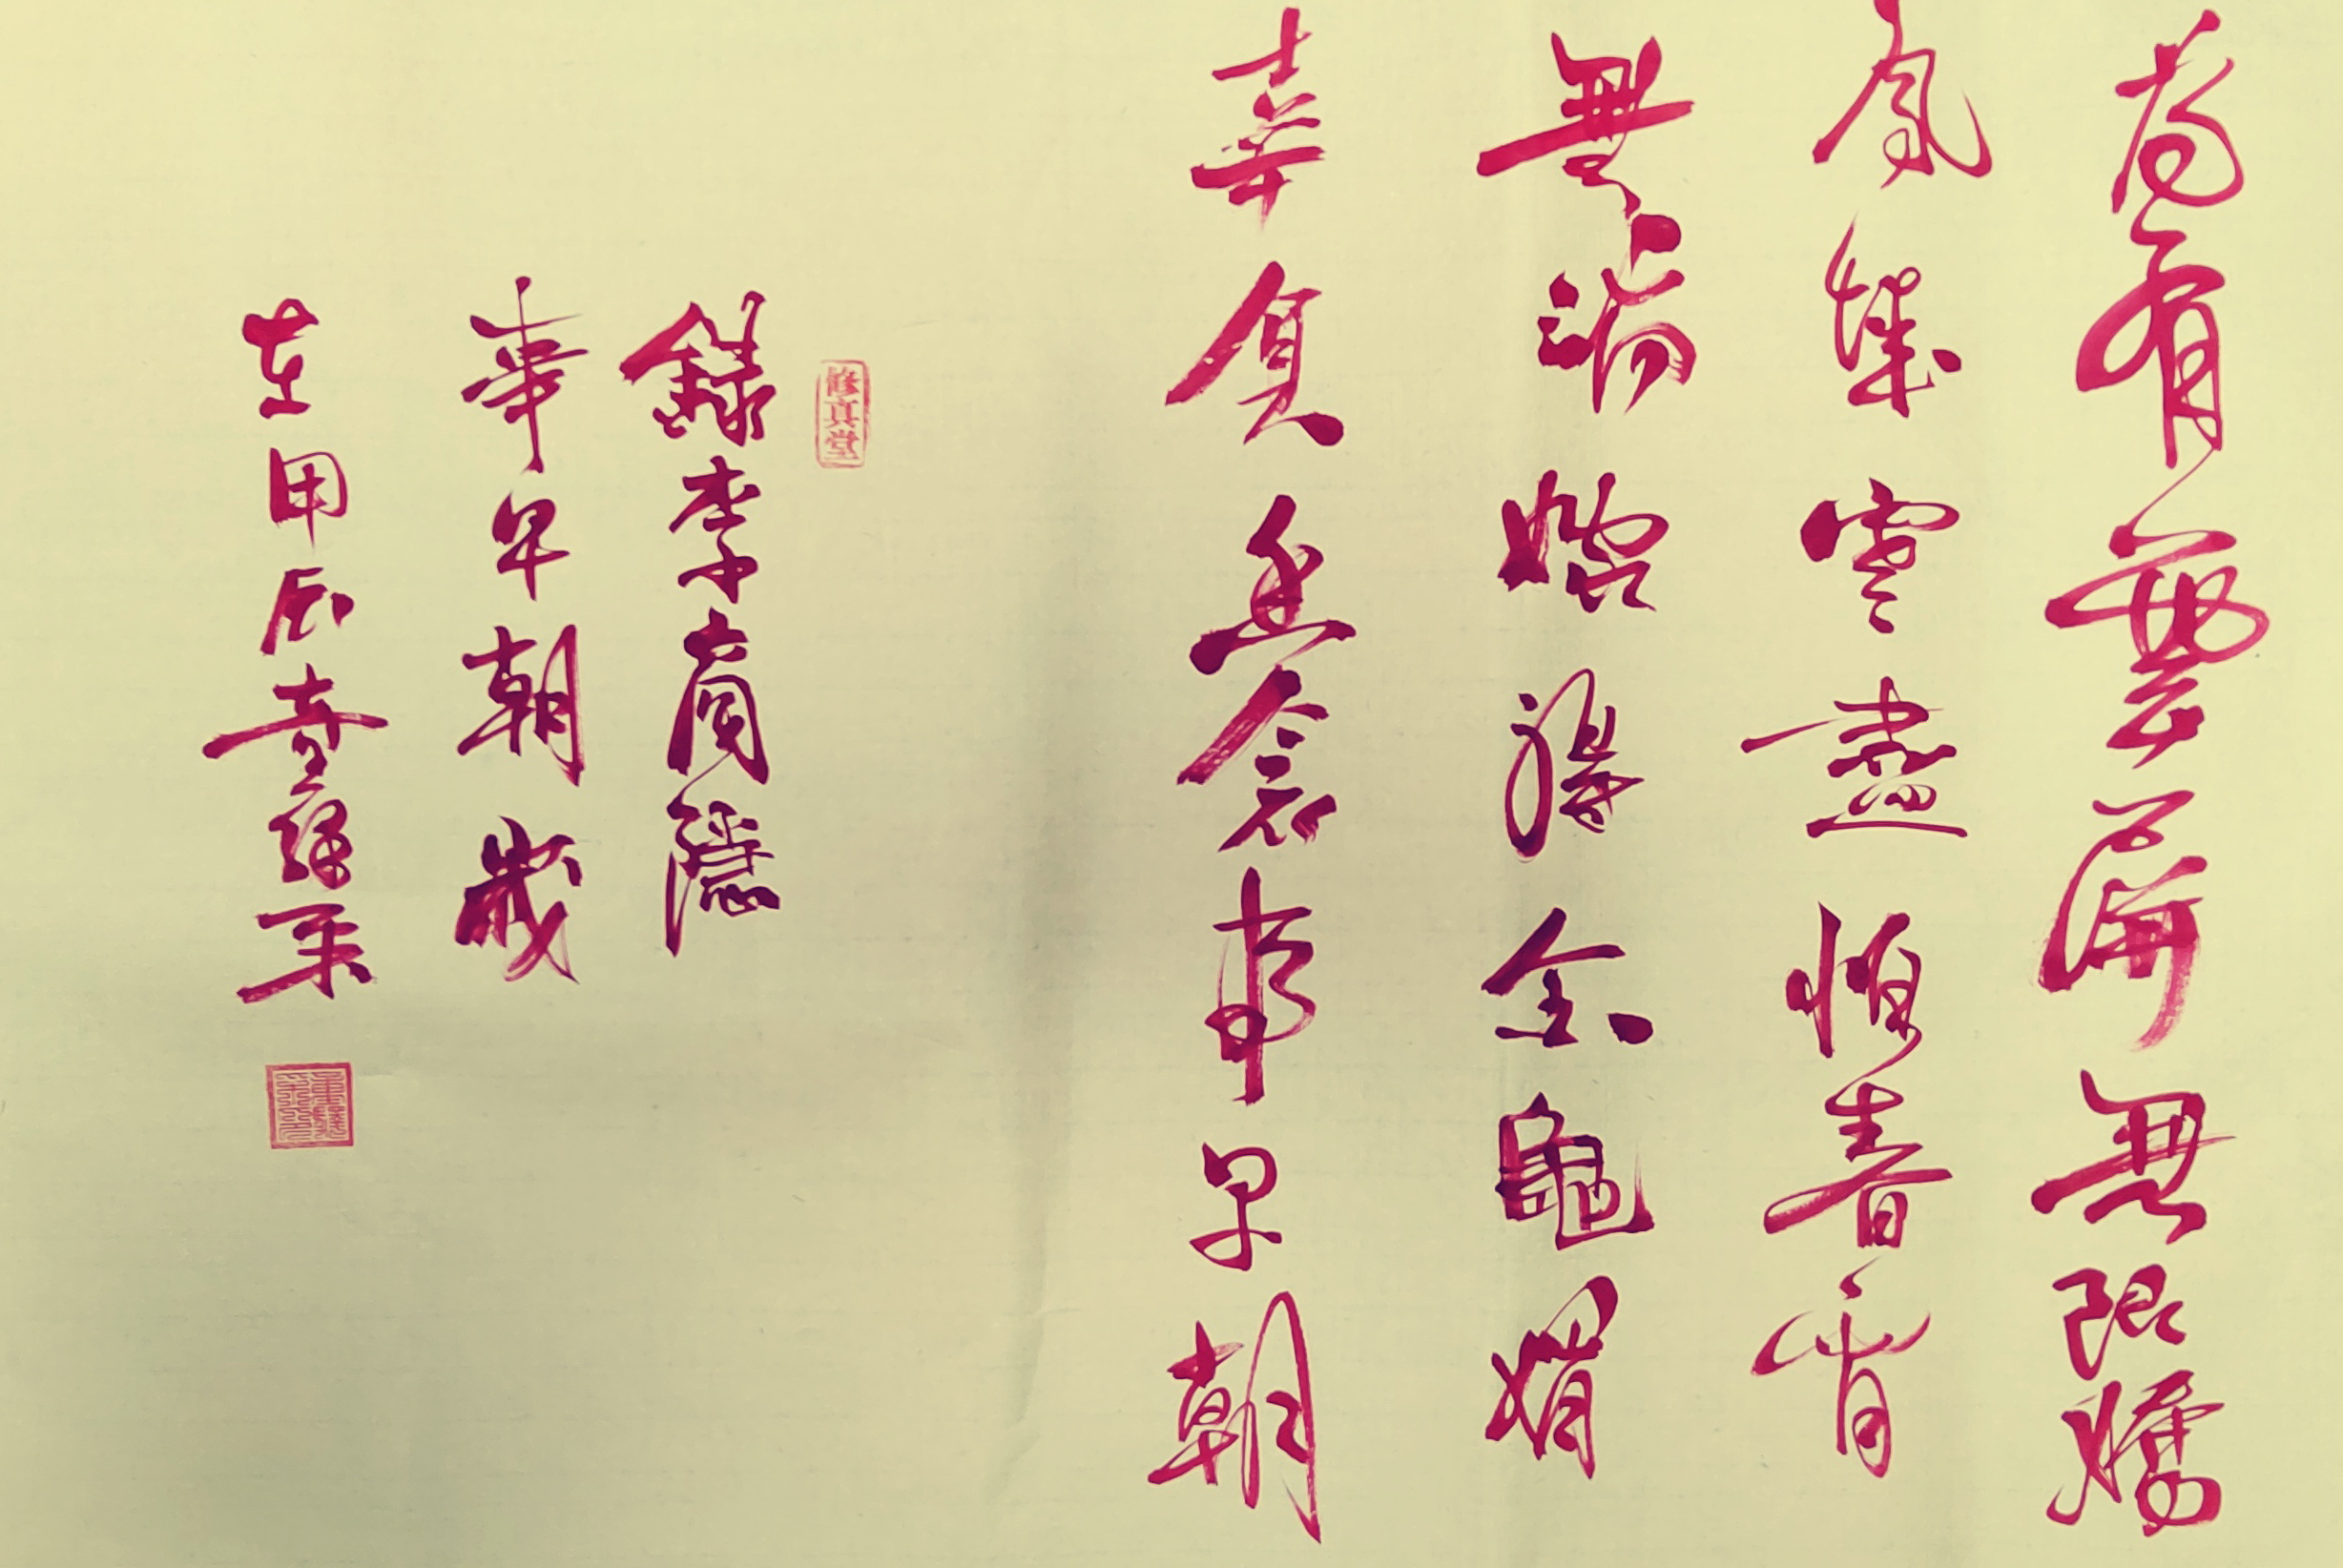 為有雲屏無限嬌
鳳城寒盡春宵
無端嫁得金龜婿
辜負香衾事早朝
修真堂
錄李商隱
早朝歲
在甲辰